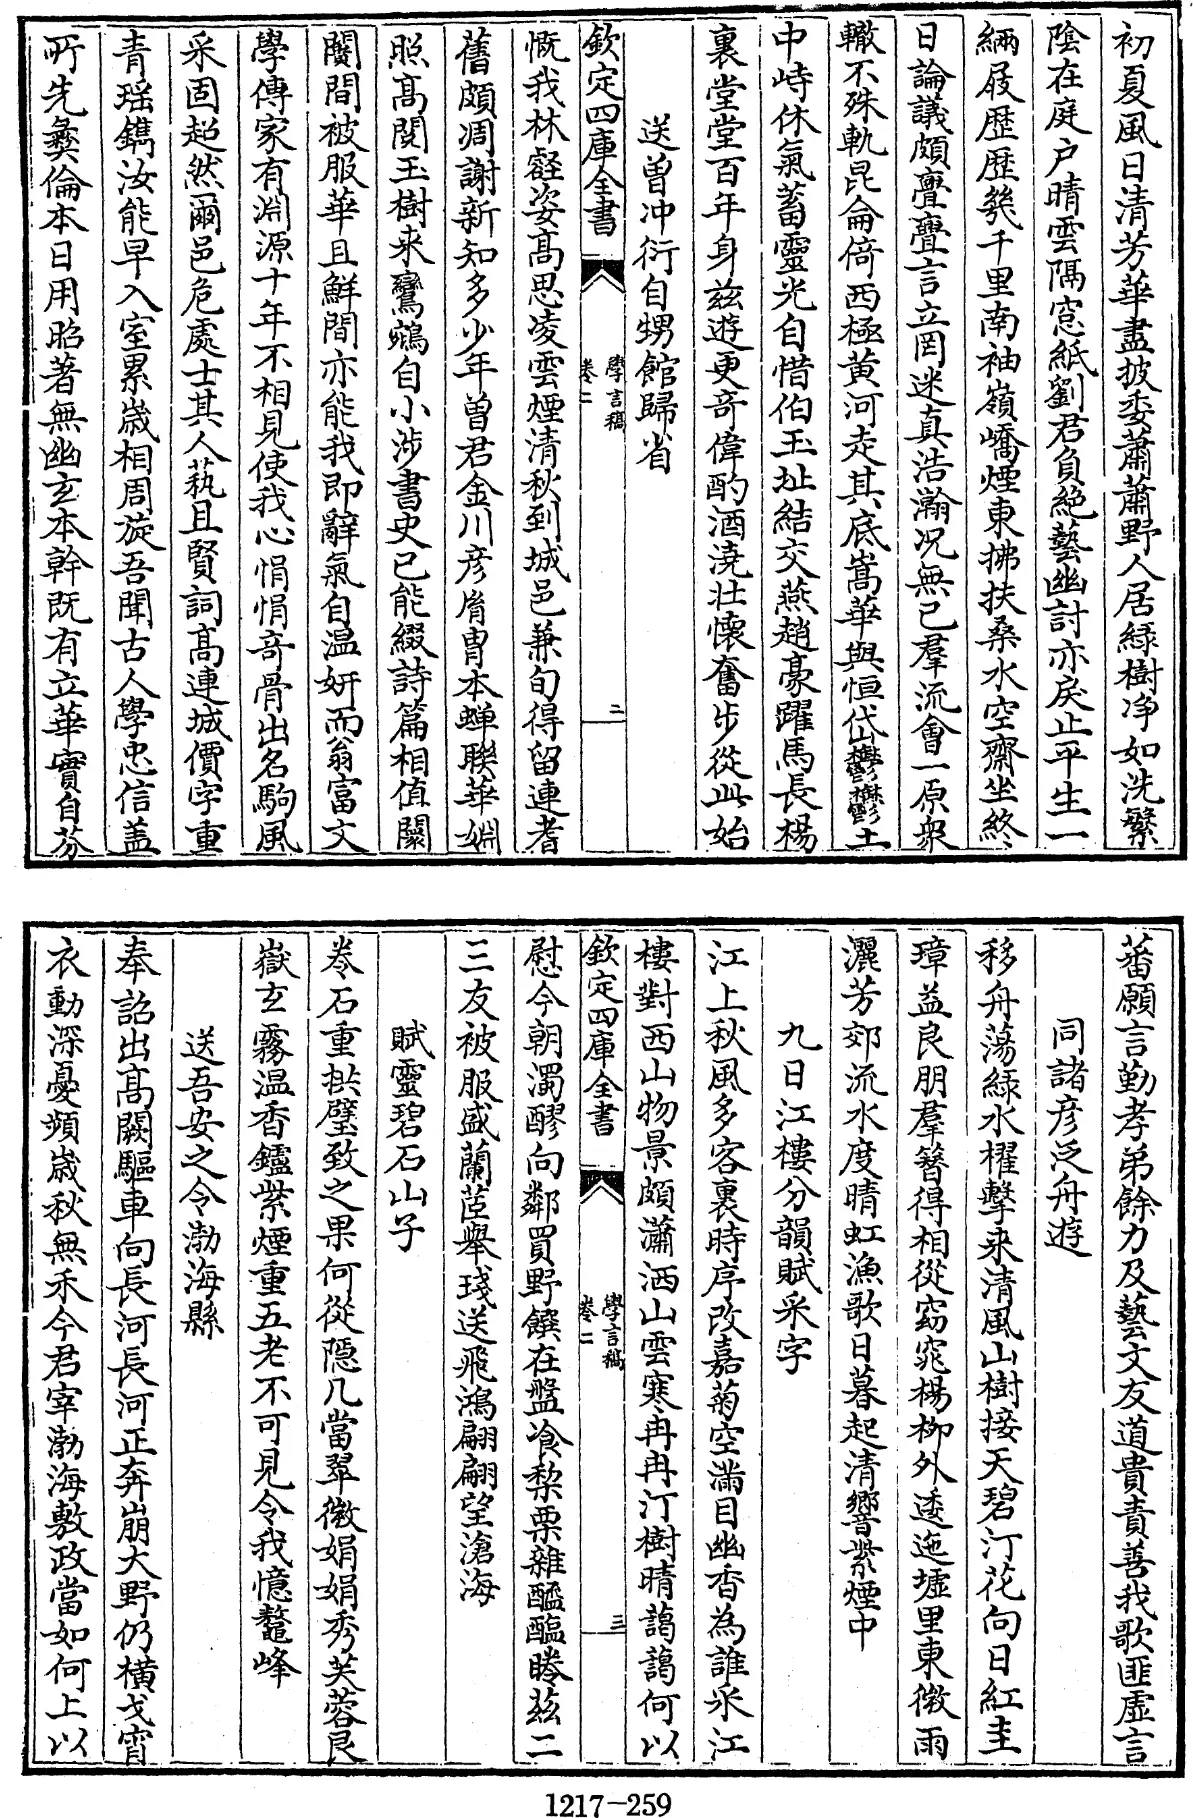 初夏風日清芳華盡披委蕭蕭野人居緑樹净如洗繁
陰在庭户晴雲隔窓紙劉君負絶藝幽討亦戾止平生一
緉屐歴歴幾千里南袖嶺嶠煙東拂扶桑水空齋坐終
日論議頗亹亹言立罔迷真浩瀚况無已羣流會一原衆
轍不殊軌昆侖倚西極黄河走其底嵩華與恒岱鬱鬱土
中峙休氣蓄靈光自惜伯玉址結交燕趙豪躍馬長楊
裏堂堂百年身兹遊更奇偉酌酒澆壮懷奮步從此始
送曽冲衍自甥館歸省
欽定四庫全書
學言稿
卷二
二
慨我林壑姿髙思凌雲煙清秋到城邑兼旬得留連耆
舊頗凋謝新知多少年曽君金川彦胄本蟬聯華姻
照髙閎玉樹来鸞鵷自小渉書史已能綴詩篇相值闤
闠間被服華且鮮間亦能我即辭氣自温妍而翁富文
學傳家有淵源十年不相見使我心悁悁竒骨出名駒風
采固超然爾邑危處士其人蓺且賢詞髙連城價字重
青瑶鐫汝能早入室累歳相周旋吾聞古人學忠信盖
所先彜倫本日用昭著無幽玄本幹既有立華實自芬
蕃願言勤孝弟餘力及藝文友道貴責善我歌匪虚言
同諸彦泛舟遊
移舟蕩緑水櫂擊来清風山樹接天碧汀花向日紅圭
璋益良朋羣簮得相從窈窕楊柳外逶迤墟里東微雨
灑芳郊流水度晴虹漁歌日暮起清響紫煙中
九日江樓分韻賦采字
江上秋風多客裏時序改嘉菊空滿目幽杳為誰采江
樓對西山物景頗瀟洒山雲寒冉冉汀樹晴藹藹何以
欽定四庫全書
學言稿
卷二
三
慰今朝濁醪向鄰買野饌在盤飡棃栗雜醯醢睠兹二
三友被服盛蘭茝舉琖送飛鴻翩翩望滄海
賦靈碧石山子
卷石重拱璧致之果何從隠几當翠微娟娟秀芙蓉艮
嶽玄霧温香鑪紫煙重五老不可見令我憶鼇峰
送吾安之令渤海縣
奉詔出髙闕驅車向長河長河正奔崩大野仍横戈宵
衣動深憂頻歳秋無禾今君宰渤海敷政當如何上以
1217—259